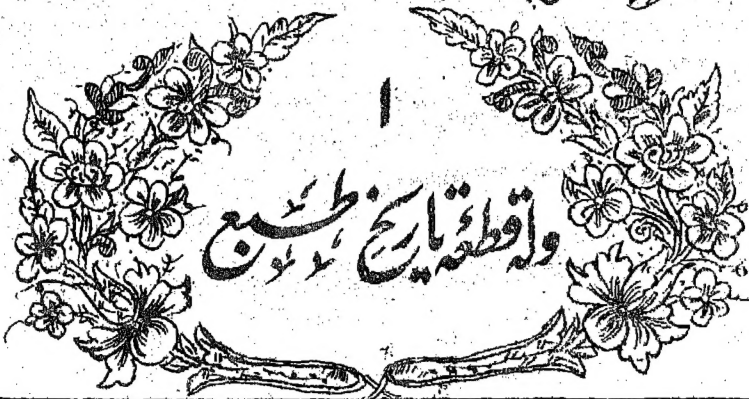 ا
ولہ قطعۂ تاریخ طبع